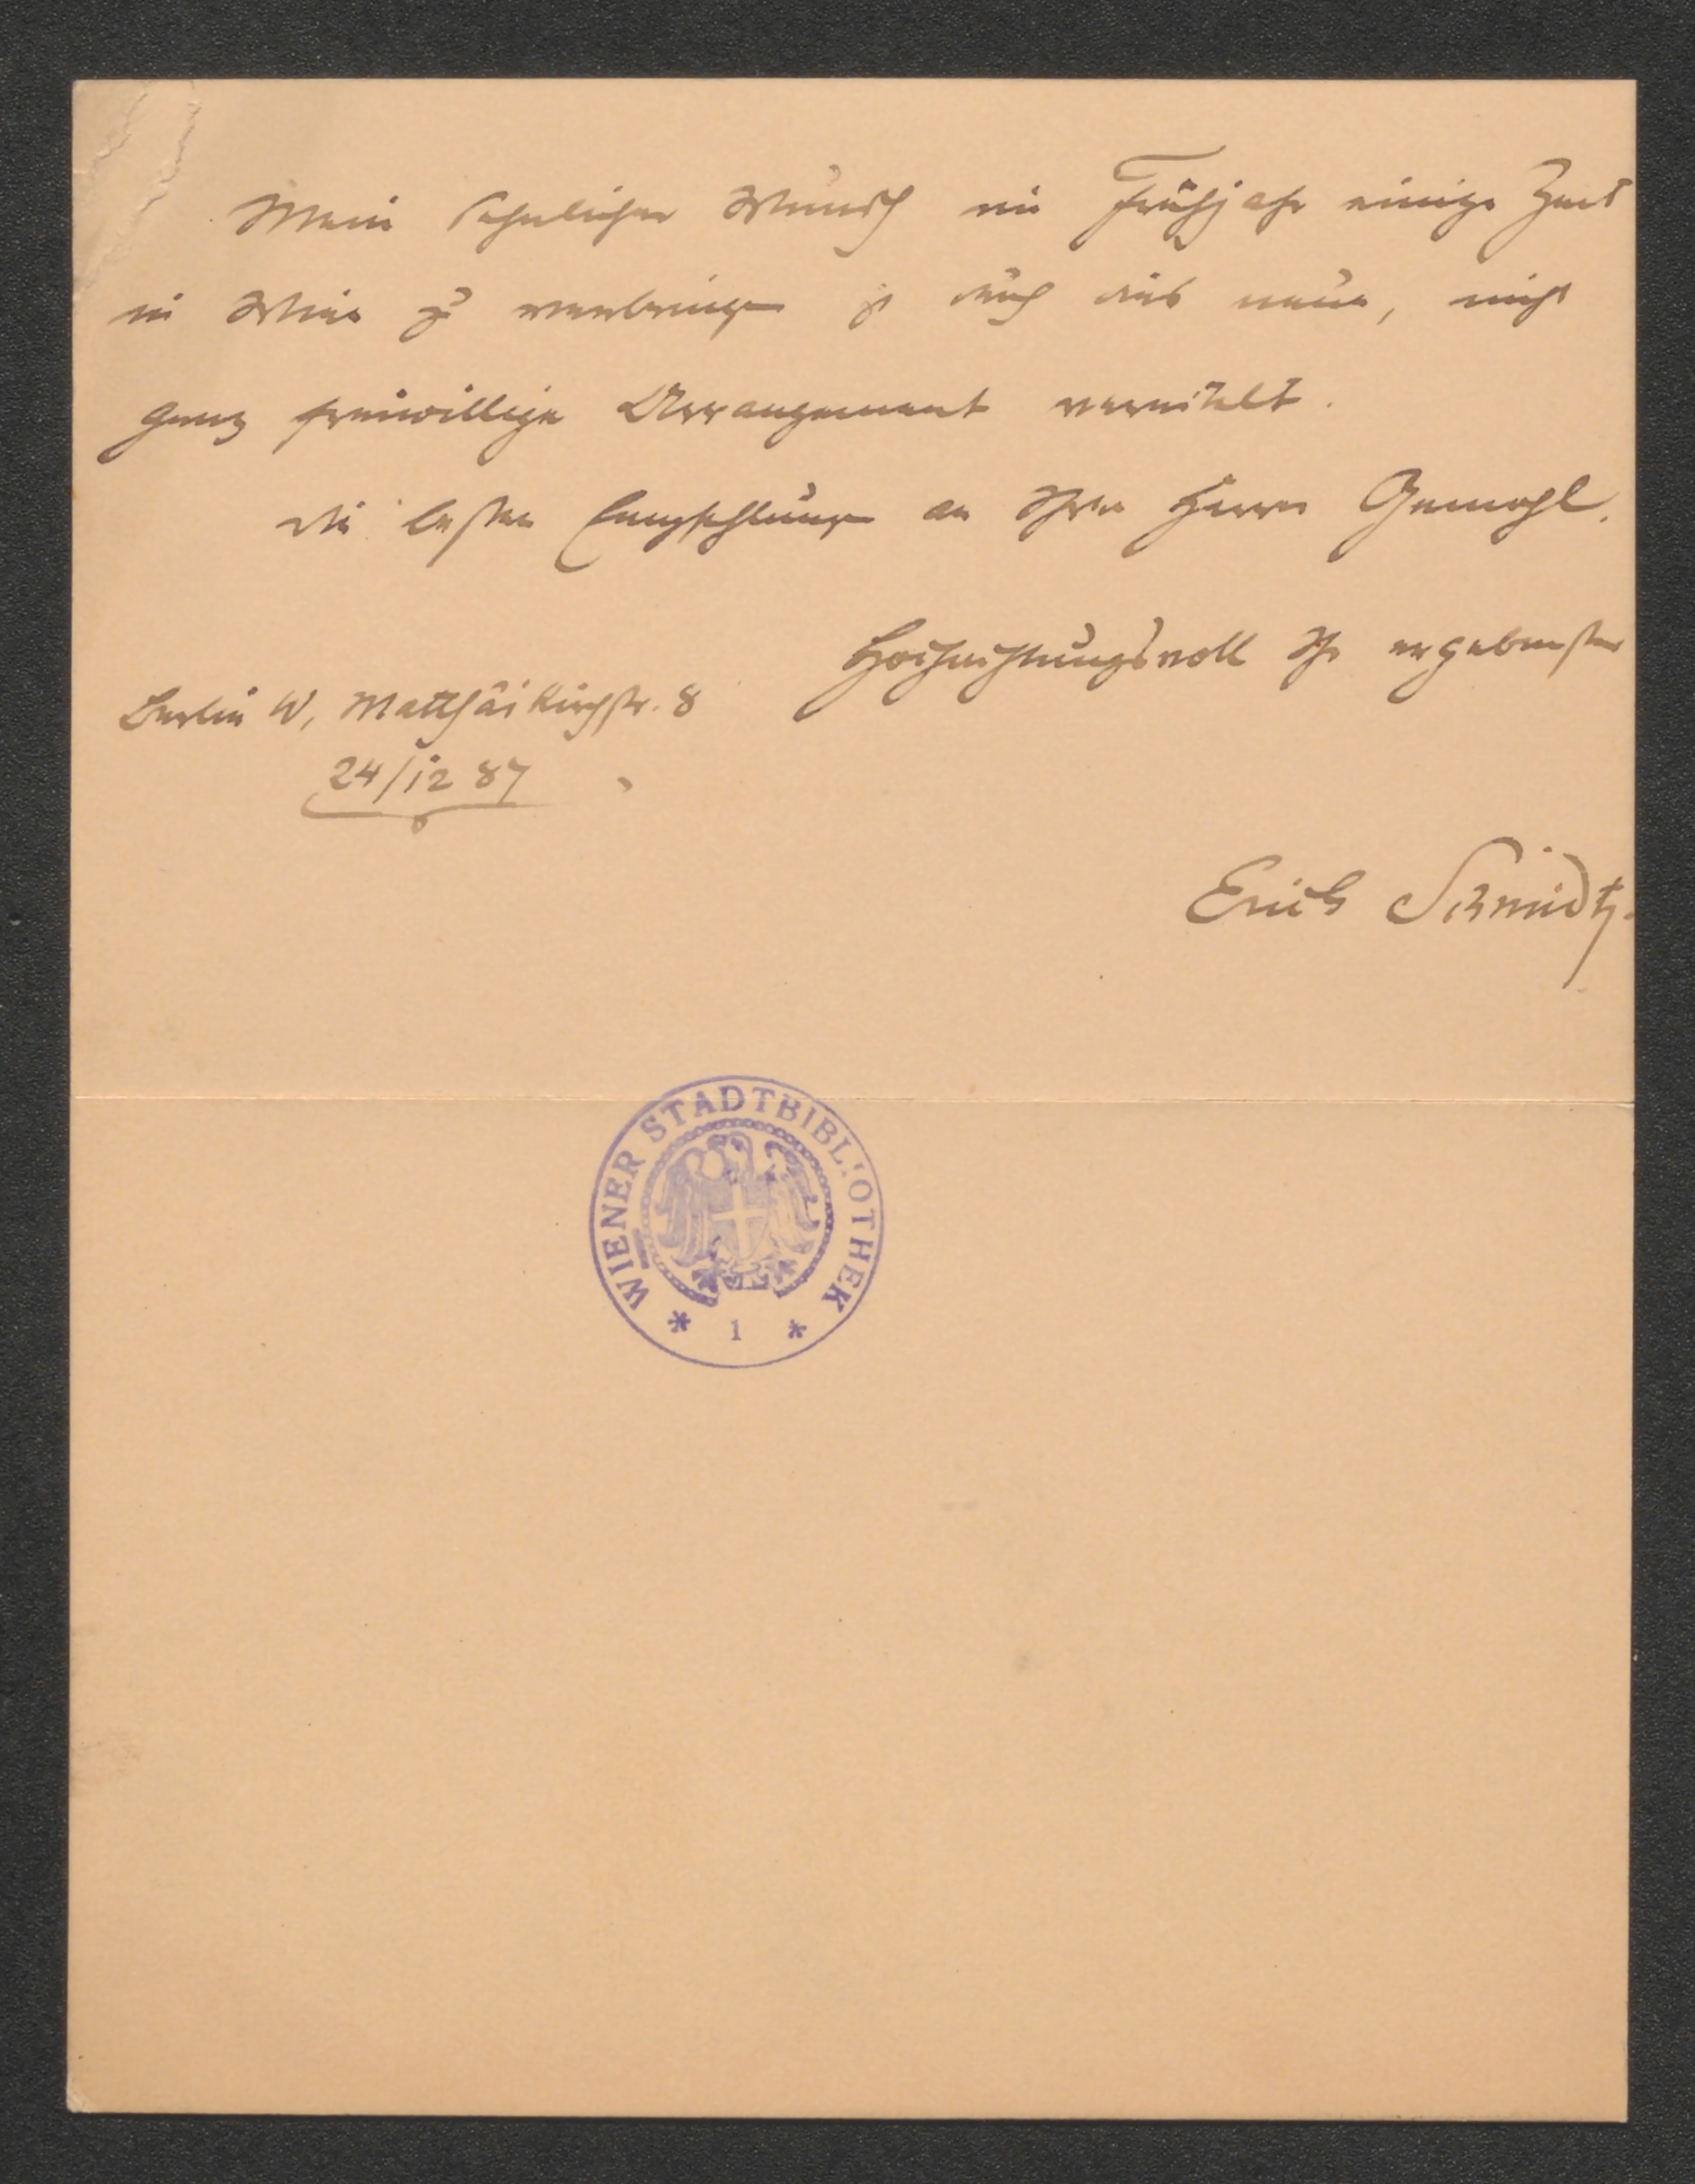 Mein sehnlicher Wunsch im Frühjahr einige Zeit
in Wien zu verbringen ist durch dies neue, nicht
ganz freiwillige Arrangement vereitelt.
Die besten Empfehlungen an Ihren Herrn Gemahl.
Hochachtungsvoll Ihr ergebenster
Berlin W, Matthäikirchstr. 8
24/12 87
Erich Schmidt.
WIENER STADTBIBLIOTHEK
* 1 *